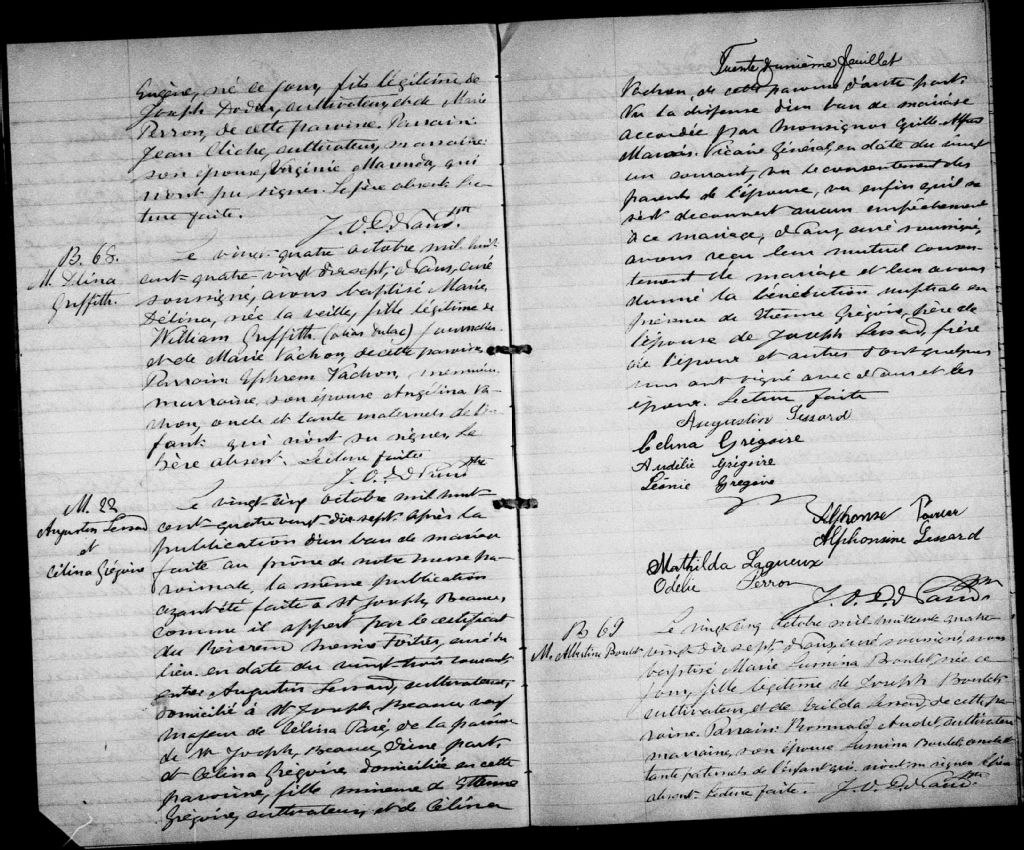 Eugène, né ce jour, fils légitime de
Joseph Doddy, cultivateur, et de Marie
Perron, de cette paroisse. Parrain:
Jean Cliche, cultivateur, marraine:
son épouse, Virginie Marenda, qui
n'ont pu signer. Le père absent. Lec-
ture faite.
J. O. D. d Ptre
B. 68.
M. Délina
Griffith.
Le vingt-quatre octobre mil huit
cent-quatre vingt dix sept, curé
soussigné, avons baptisé Marie,
Délina, née la veille, fille légitime de
William Griffith (alias Dulac) journalier
et de Marie Vachon, de cette paroisse,
Parrain Ephrem Vachon, menuisier,
marraine, son épouse Angélina Va-
chon, oncle et tante maternels de l'en-
fant qui n'ont su signer, le
père absent. Lecture faite
J. O. D. d Ptre
M. 22
Augustin Lessard
et
Célina Grégoire
Le vingt-cinq octobre mil huit-
cent quatre vingt dix sept, après la
publication d'un ban de mariage
faite au prône de notre messe pa-
roissiale, la même publication
ayant été faite à St Joseph, Beauce,
comme il appert par le certificat
du Révérend Fortier, curé du
lieu en date du vingt trois courant,
entre Augustin Lessard, cultivateur,
domicilié à St Joseph, Beauce, veuf
majeur de Célina Paré, de la paroisse
de St Joseph, Beauce, d'une part.
et Célina Grégoire, domiciliée en cette
paroisse, fille mineure de Etienne
Grégoire, cultivateur, et de Célina
Trente deuxième feuillet
Vachon, de cette paroisse d'autre part.
Vu la dispense d'un ban de mariage
accordée par Monsignor
Marois, Vicaire Général, en date du vingt
un courant, vu le consentement des
parents de l'épouse, vu enfin qu'il ne
s'est découvert aucun empêchement
à ce mariage, curé soussigné,
avons reçu leur mutuel consen-
tement de mariage et leur avons
donné la bénédiction nuptiale en
présence de Etienne Grégoire, père de
l'épouse de Joseph Lessard, frère
de l'époux et autres dont quelques
uns ont signé avec et les
époux. Lecture faite
Augustin Lessard
Celina Grégoire
Audélie Grégoire
Léonie Gregoire
Alphonse Poirier
Alphonsine Lessard
Mathilda Lagueux
Odélie Perron
J. O. D. d Ptre
B 69
M. Albertine Boulet
Le vingt-cinq octobre mil huit cent quatre
vingt dix sept, curé soussigné, avons
baptisé Marie Lumina Boulet, née ce
jour, fille légitime de Joseph Boulet,
cultivateur, et de Exilda Lessard, de cette pa-
roisse. Parrain: Romuald Audet, cultivateur
marraine, son épouse Lumina Boulet, oncle et
tante paternels de l'enfant qui n'ont su signer. Le père
absent. Lecture faite. J. O. D. d Ptre